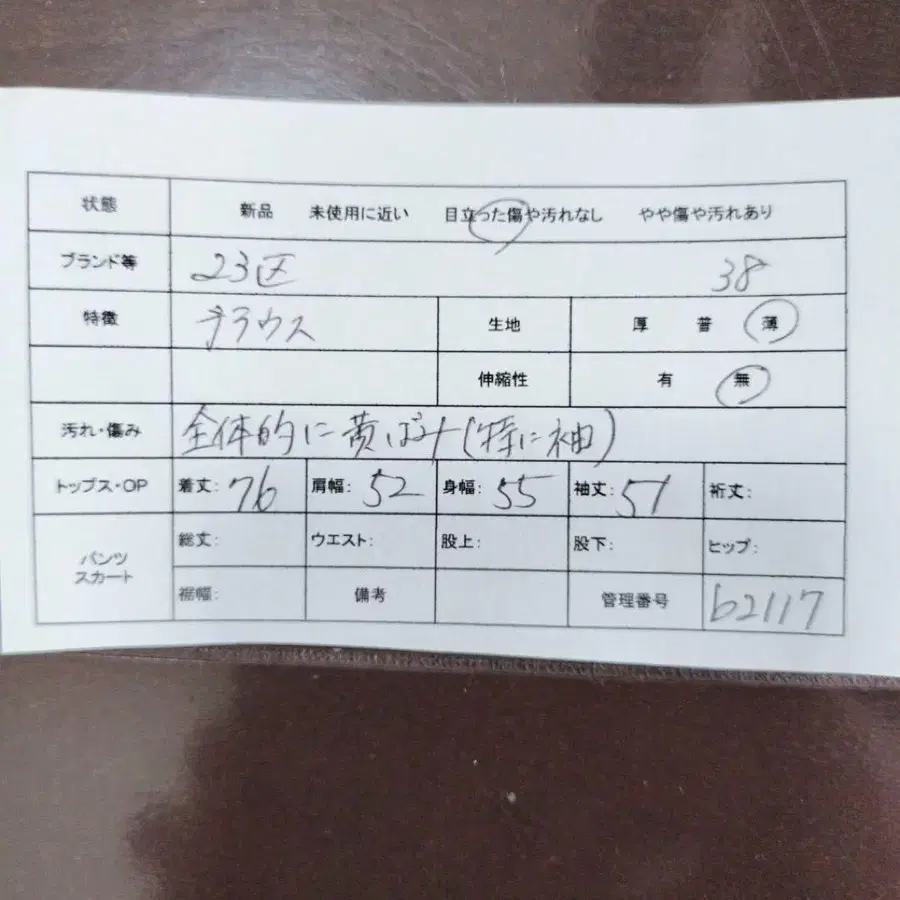 状態 新品 未使用に近い 目立った傷や汚れなし やや傷や汚れあり
ブランド等 23区 38
特徴 ブラウス 生地 厚 普 薄
伸縮性 有 無
汚れ・傷み 全体的に黄ばみ(特に袖)
トップス・OP 着丈: 76 肩幅: 52 身幅: 55 袖丈: 51 裄丈:
パンツ スカート 総丈: ウエスト: 股上: 股下: ヒップ:
裾幅: 備考 管理番号 b2117